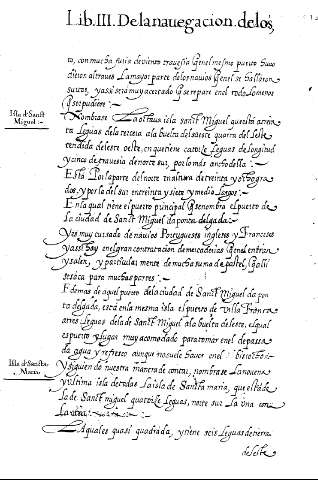 Lib. III. De la nauegacion. de los,
to, con mucha furia de viento trauesia
dieron al traues la mayor parte de los nauios que en el se hallaron
surtos, y assi será muy acertado que se repare en el todo lo menos
que se pudiere:~
Isla de Sanct
Miguel:~
Nombrase La otra isla Sanct Miguel questa treinta
Leguas de la tercera ala buelta del sueste quarta del leste
tendida de leste oeste, en que tiene catorze Leguas de longitud
y cinco de trauesia de norte sur, por lo más ancho della:~
Está Por la parte del norte en altura de treinta y ocho gra
dos, y por la del sur en treinta y siete y medio Largos:~
En la qual tiene el puerto principal que se nombra el puerto de
la ciudad de Sanct Miguel da ponta delgada:~
Y es muy cursado de nauios Portugueses ingleses y Franceses
y assi hay en el gran contractacion de mercaderias que en el entran
y salen, y particular mente de mucha suma de pastel, que del
se saca para muchas partes:~
E demas de aquel puerto de la ciudad de Sanct Miguel da pon
ta delgada, está en la mesma isla el puerto de Villa Franca
Leguas dela de Sanct Miguel ala buelta de leste, el qual
es puerto y lugar muy acomodado para tomar en el de passa
da agua y refresco aunque no suele hauer en el
Isla de Sancta
Maria:~
Y siguiendo nuestra manera de contar, nombrase La nouena
y última isla de todas La isla de Sancta maria, que está de
la de Sanct miguel quatorze Leguas, norte sur La una con
La otra:~
La qual es quasi quadrada, y tiene seis Leguas de tierra
de leste